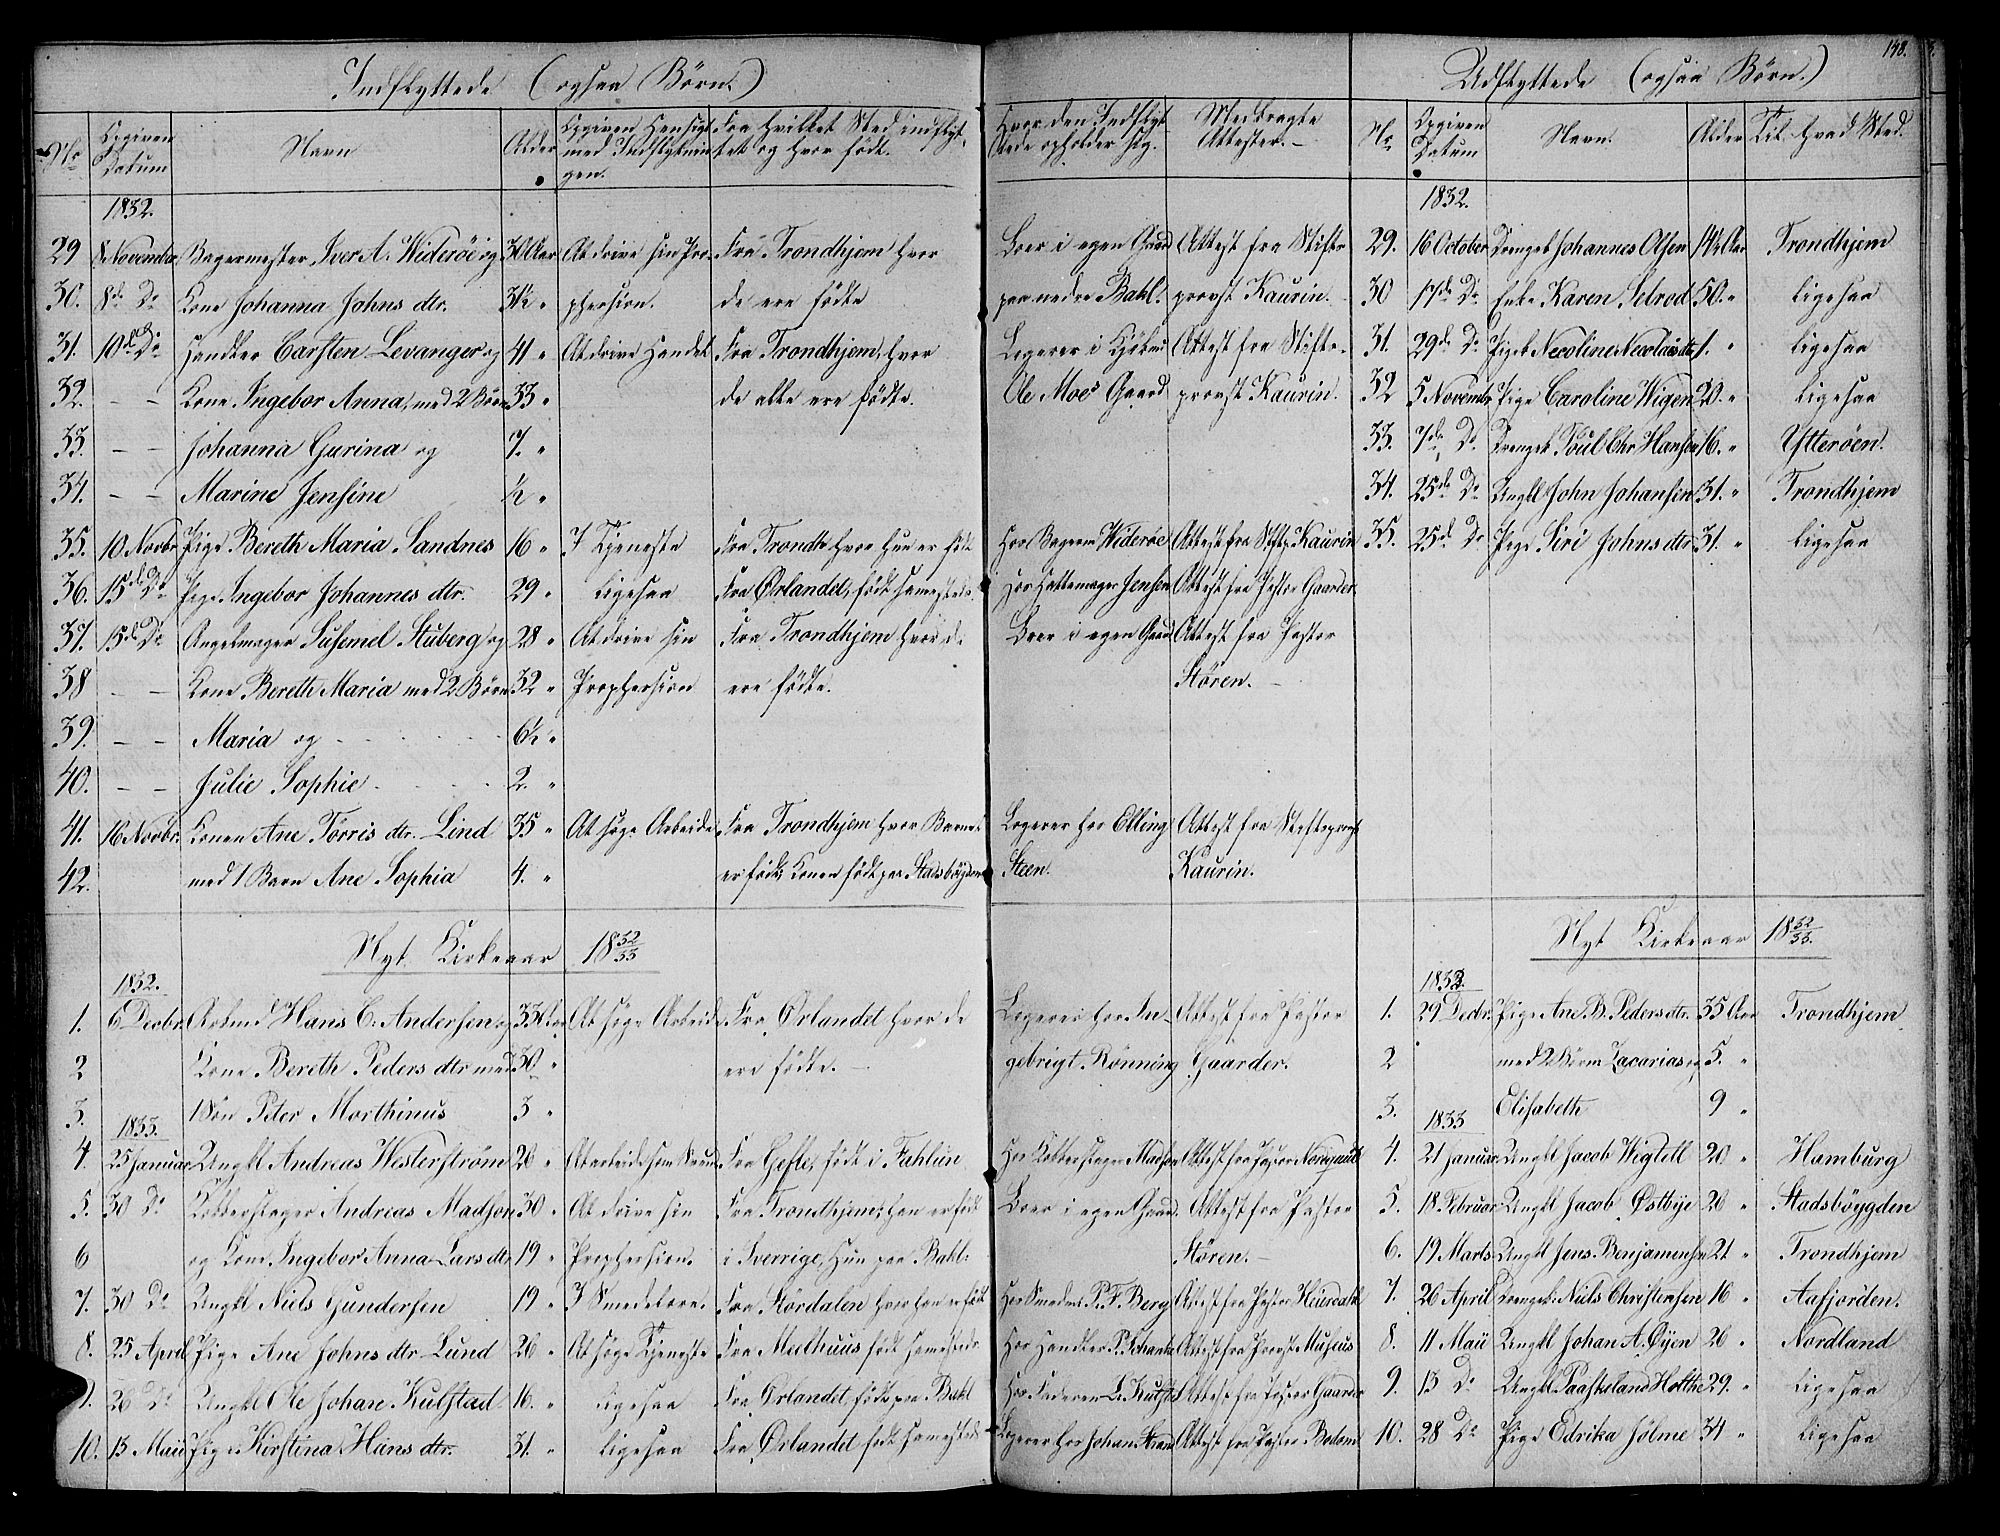 148.
Indflyttede (ogsaa Børn.)
No
Opgiven Datum
Navn
Alder
Opgiven Hensigt med Indflytningen.
Fra hvilket Sted indflyttet og hvor født.
Hvor den Indflyttede opholder sig.
Medbragte Attester.
1832.
29 8 November Bagermester Iver A. Widerøe og 30 Aar At drive sin Pro- Fra Trondhjem hvor Boer i egen Gaard Attest fra Stifts-
30. 8de Do Kone Johanna Johns dtr. 31½ " phersion. de ere fødte paa nedre Bakl. provst Kaurin.
31. 10de Do Handler Carsten Levanger og 41 " At drive Handel Fra Trondhjem, hvor Logerer i Attest fra Stifts-
32. – – Kone Ingebor Anna, med 2 Børn 33 " de alle ere fødte. Ole Moes Gaard provst Kaurin.
33. – – Johanna Gurina og 7. "
34. – – Marine Jensine ½ "
35. 10 Novbr. Pige Bereth Maria Sandnes 16 " I Tjeneste Fra Trondh. hvor hun er født Hos Bagerm Widerøe Attest fra Stiftp. Kaurin
36. 15de Do Pige Ingebor Johannes dtr. 29 " ligesaa Fra Ørlandet, født sammesteds. Hos Hattemager Jensen Attest fra Pastor Gaarder.
37. 15de Do Angelmager Susemel Stuberg og 28 " At drive sin Fra Trondhjem hvor de Boer i egen Gaard Attest fra Pastor
38 – – Kone Bereth Maria med 2 Børn 32 " Prophersion ere fødte. Stören.
39. – – Maria og 6½ "
40. – – Julie Sophie 2. "
41. 16 Novbr. Konen Ane Törris dtr. Lind 35 " At søge Arbeide Fra Trondhjem hvor Barnet Logerer hos Elling Attest fra Stiftsprovst
42. med 1 Barn Ane Sophia 4. " er født; Konen født paa Stadsböygden Steen. Kaurin.
Nyt Kirkeaar 18 32/33
1832.
1. 6 Decbr. Arbmd Hans C. Andersen og 33 Aar At søge Arbeide Fra Ørlandet hvor de Logerer hos In- Attest fra Pastor
2 Kone Bereth Peders dtr med 30 " ere fødte. gebrigt Rönning Gaarder.
3. 1 Søn Peter Morthinus 3 "
1833.
4. 25 Januar Ungkl Andreas Westerström 26 " At arbeide som Svend Fra Gefle, født i Fahlun Hos Kobberslager Madsen Attest fra Pastor
5. 30 Do Kobberslager Andreas Madson 30 " At drive sin Fra Trondhjem; han er født Boer i egen Gaard Attest fra Pastor
6 og Kone Ingebor Anna Lars dtr 19 " Prophersion. i Sverrige, hun paa Bakl: Stören.
7. 30 Do Ungkl Niels Gundersen 19 " I Smedelære. Fra Stördalen hvor han er født Hos Smedm P. F. Berg Attest fra Pastor Heierdahl
8. 25 April Pige Ane Johns dtr Lund 26 " At søge Tjeneste Fra Meelhuus født sammesteds Hos Handler P. Attest fra Provst Museus
9. 26 Do Ungkl Ole Johan Kulstad 16. " ligesaa Fra Ørlandet, født paa Bakl Hos Faderen L. Attest fra Pastor Gaarder
10. 13 Maii Pige Kirstina Hans dtr. 31. " ligesaa Fra Ørlandet født sammesteds Logerer hos Johan Attest fra Pastor Bodom
Udflyttede (ogsaa Børn.)
No
Opgiven Datum
Navn.
Alder
Til hvad Sted.
1832.
29. 16 October Drengeb Johannes Olsen 14½ Aar Trondhjem
30 17de Do Enke Karen Selrod 50. " ligesaa
31. 29de Do Pigeb Necoline Necolais dtr 1. " ligesaa
32 5 Novembr Pige Caroline Wigen 20. " ligesaa
33. 7de Do Drengeb Poul Chr Hansen 16. " Ytterøen.
34. 25de Do Ungkl John Johansen 31. " Trondhjem
35. 25de Do Pige Siri Johns dtr 31. " ligesaa
Nyt Kirkeaar 18 32/33.
1832.
1. 29 Decbr. Pige Ane B. Peders dtr. 35 Aar Trondhjem
2 med 2 Børn Zacarias og 5. "
3. Elisabeth 9 "
1833
4. 21 Januar Ungkl Jacob Wigtell 20 " Hamburg
5. 18 Februar Ungkl Jacob Østbye 26 " Stadsböygden
6. 19 Marts Ungkl Jens Benjaminsen 21 " Trondhjem
7. 26 April Drengeb. Niels Christensen 16 " Aafjorden.
8. 11 Maii Ungkl Johan A. Øyen 26 " Nordland
9. 13 Do Ungkl Paaskeland Holthe 29. " ligesaa
10. 28 Do Pige Edrika Jolme 34 " ligesaa